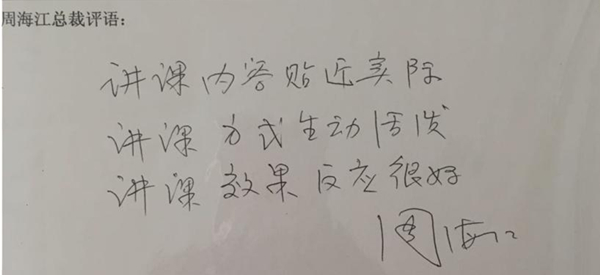 周海江总裁评语：
讲课内容贴近实际
讲课方式生动活泼
讲课效果反应很好
周海江